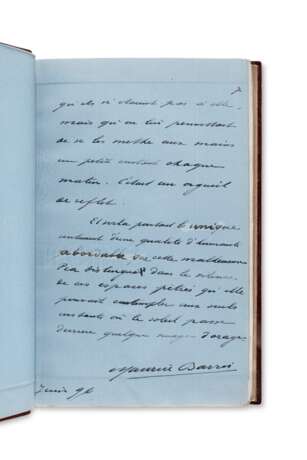 qui ils n'étaient pas à elle
mais qu'on lui permettait
de se les mettre aux mains
un petit instant chaque
matin. C'était un orgueil
de reflet.
Et voilà pourtant le unique
instant d'une quantité d'humanité
abordable que cette malheureuse
distinguait dans le silence
de ces espaces pétrés qu'elle
pouvait contempler aux seuls
instants où le soleil passe
derrière quelque nuage d'orage.
Maurice Barrès
Juin 96